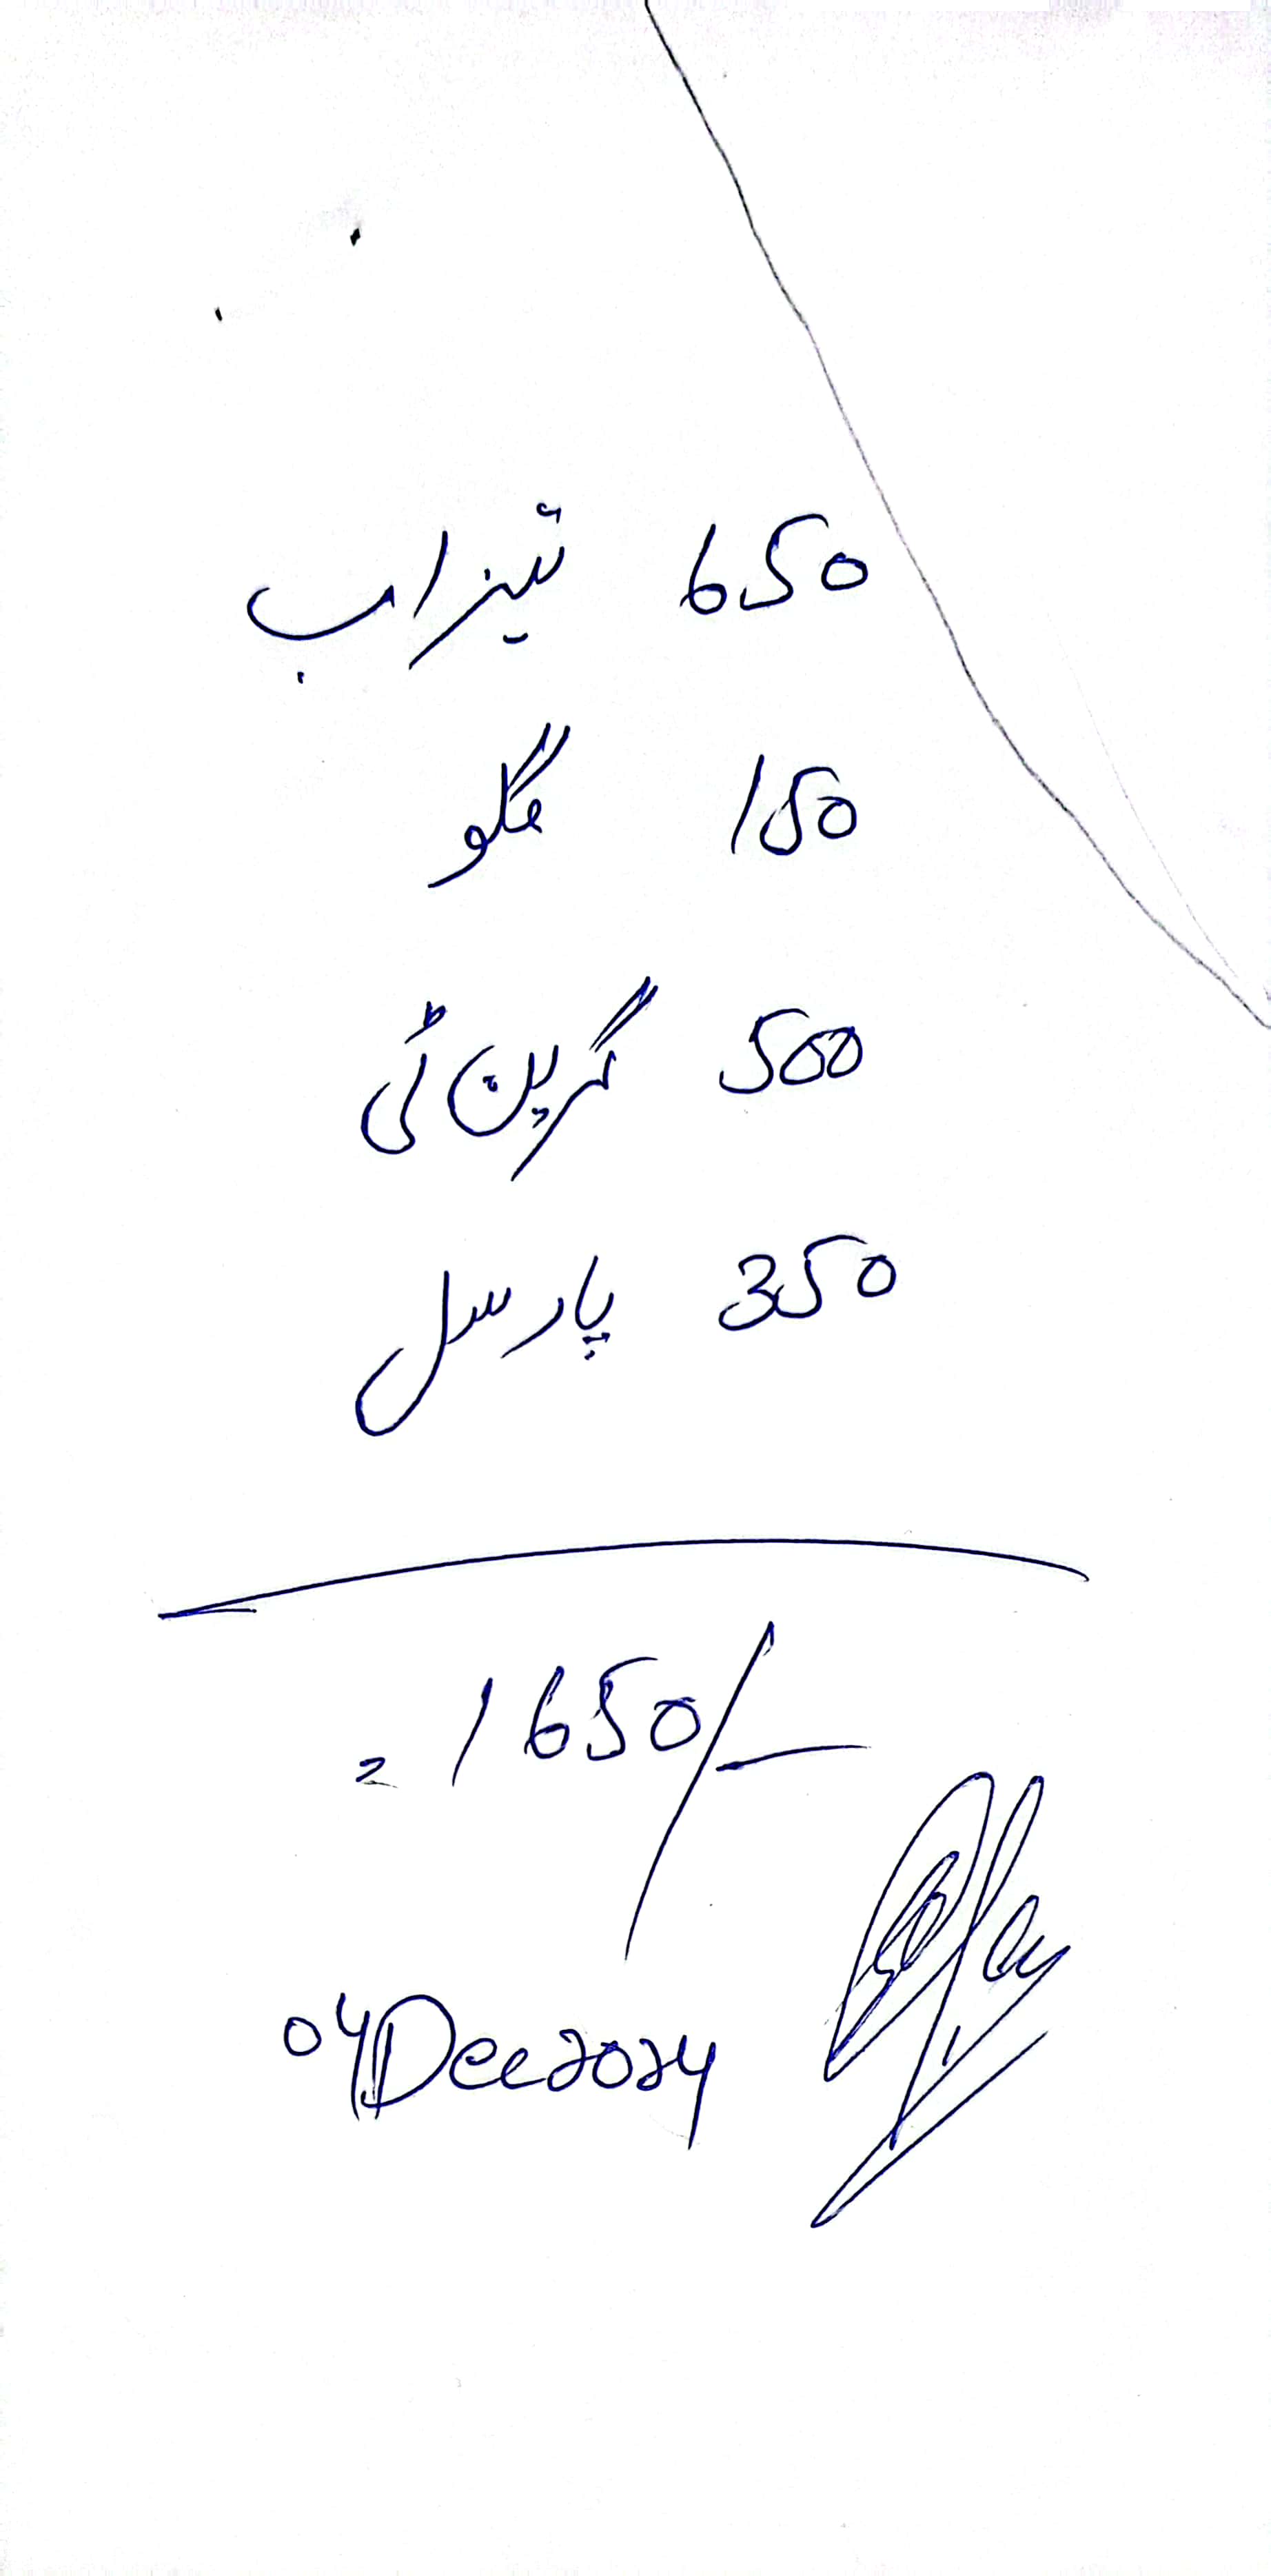 650 تیزاب
150 گلو
500 گرین ٹی
350 پارسل
= 1650/-
04 Dec 2024